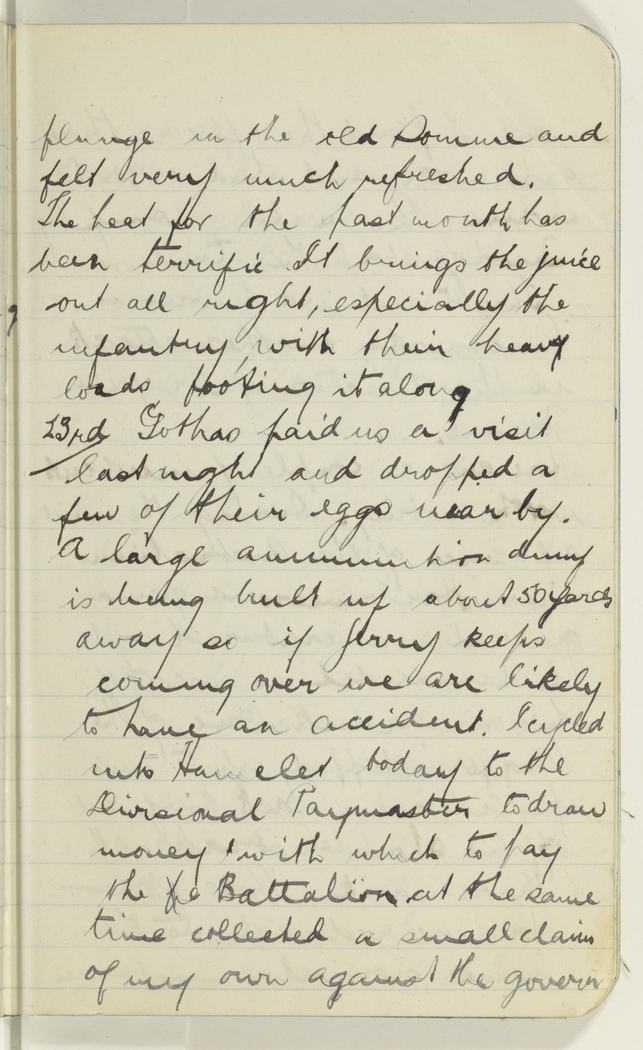 plunge in the old Somme and
felt very much refreshed.
The heat for the past month has
been terrific It brings the juice
out all right, especially the
infantry, with their heavy
loads footing it along
23rd Gothas paid us a visit
last night and dropped a
few of their eggs near by.
A large ammunition dump
is being built up about 50 yards
away so if Jerry keeps
coming over we are likely
to have an accident. I cycled
into Hamelet today to the
Divisional Paymaster to draw
money & with which to pay
the Battalion at the same
time collected a small claim
of my own against the govern